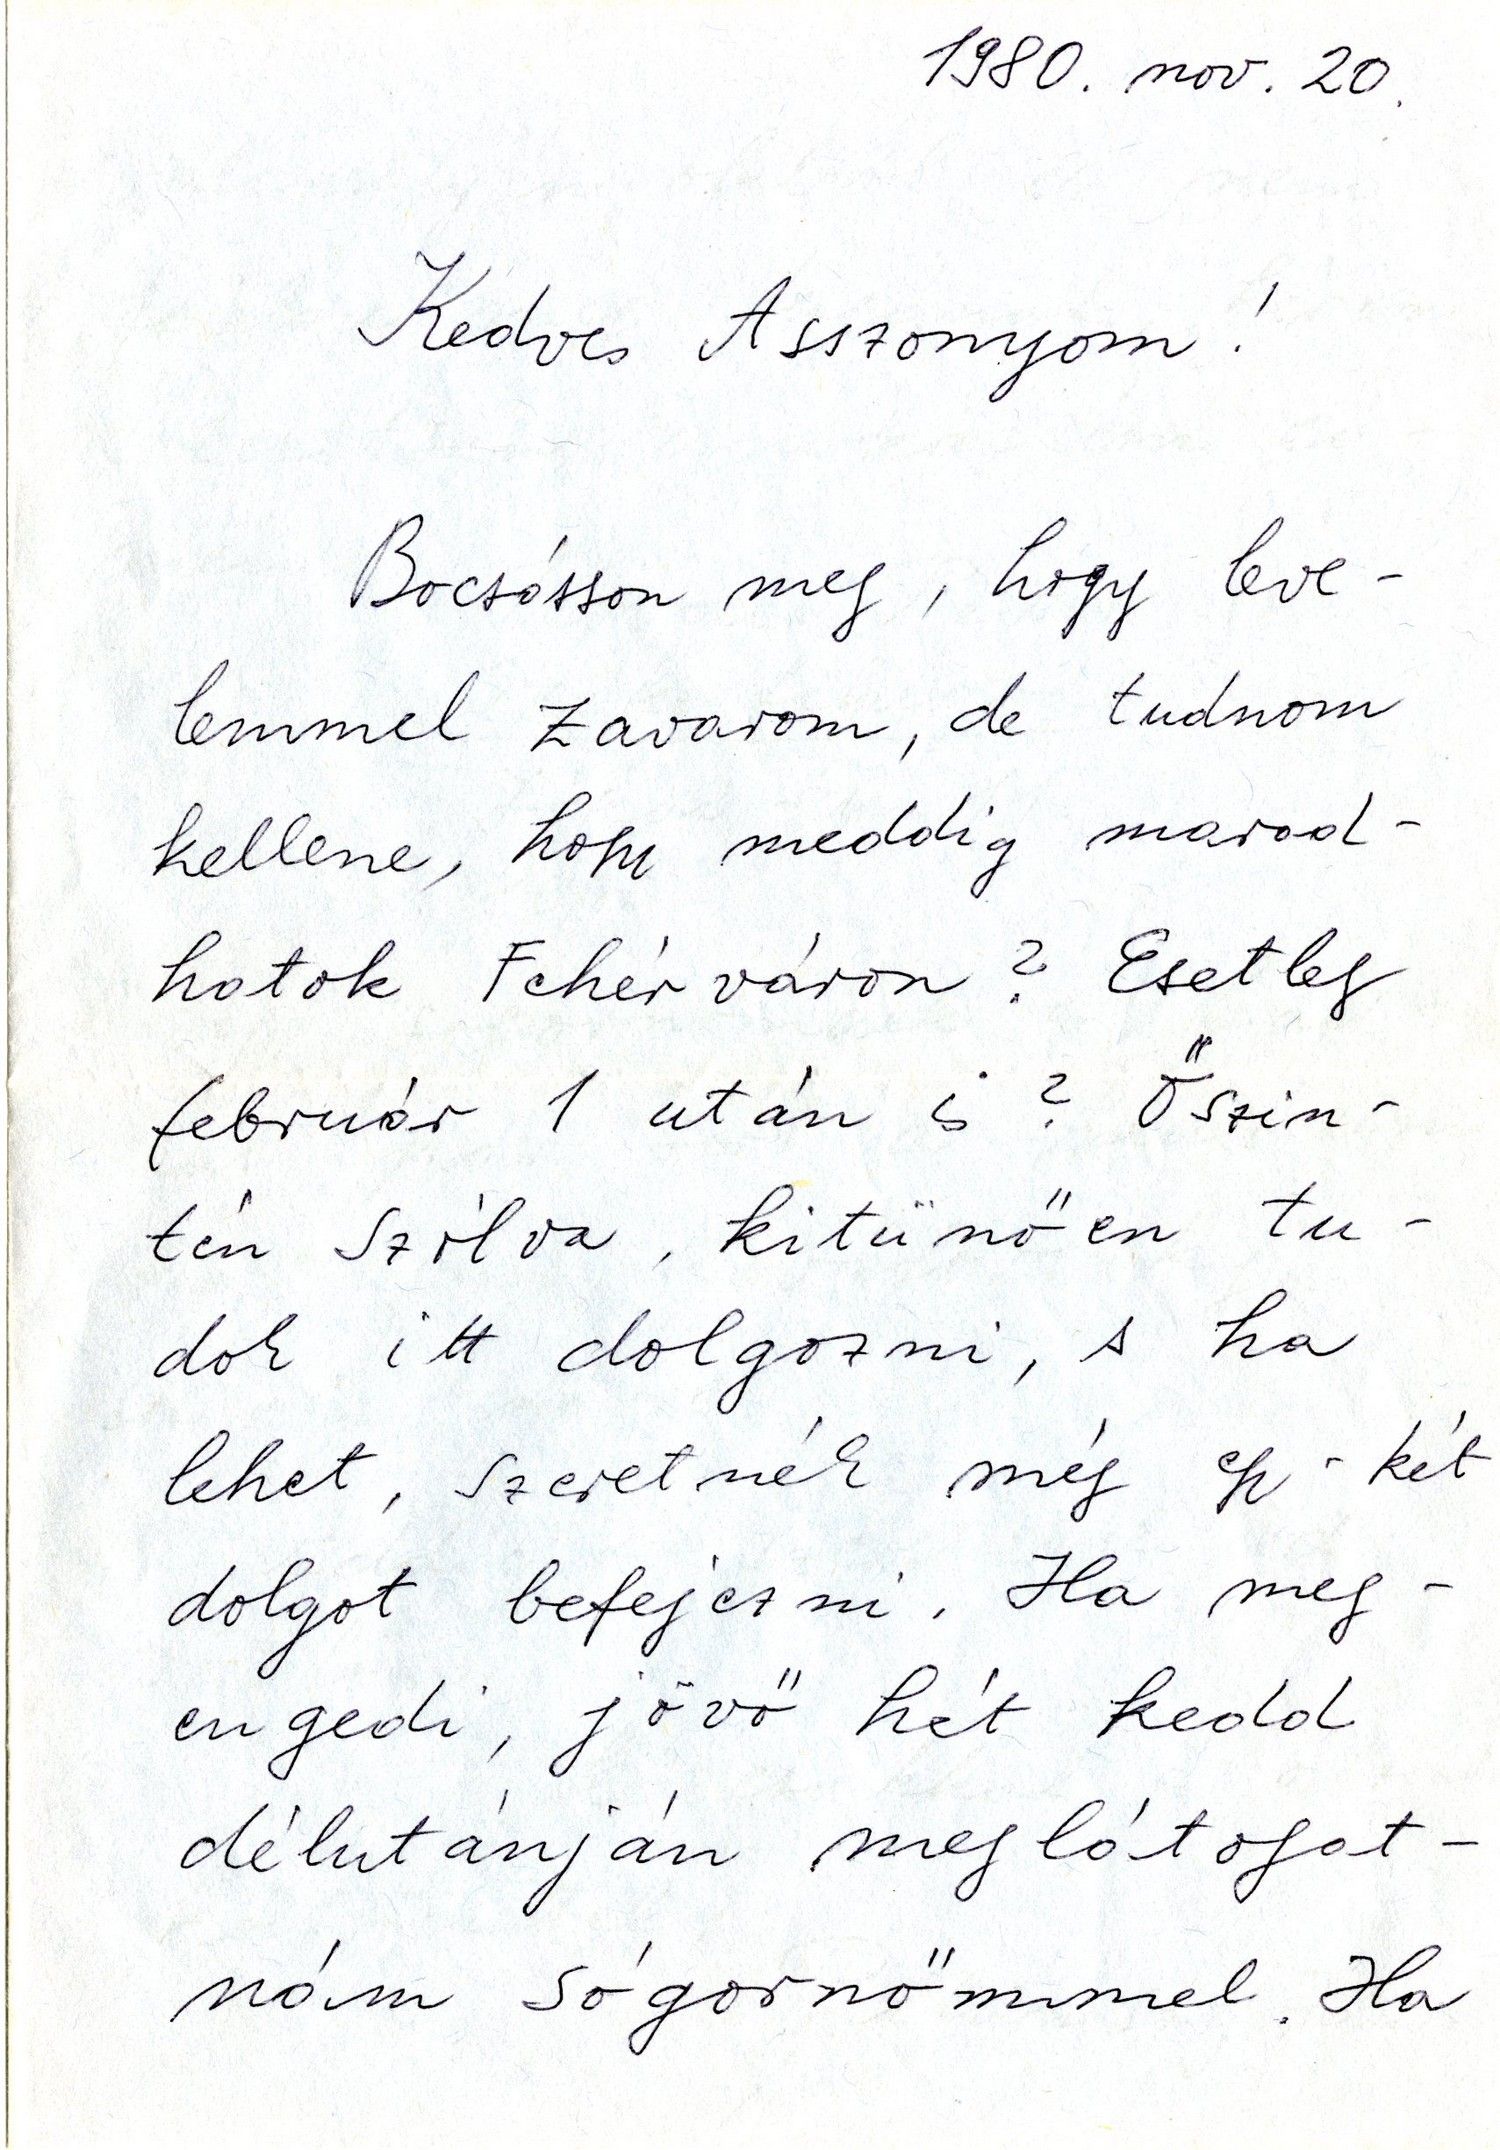 1980. nov. 20.
Kedves Asszonyom!
Bocsásson meg, hogy leve-
lemmel zavarom, de tudnom
kellene, hogy meddig marad-
hatok Fehérváron? Esetleg
február 1 után is? Őszin-
tén szólva, kitünően tu-
dok itt dolgozni, s ha
lehet, szeretnék még egy-két
dolgot befejezni. Ha meg-
engedi, jövő hét kedd
délutánján meglátogat-
nám sógornőmmel. Ha